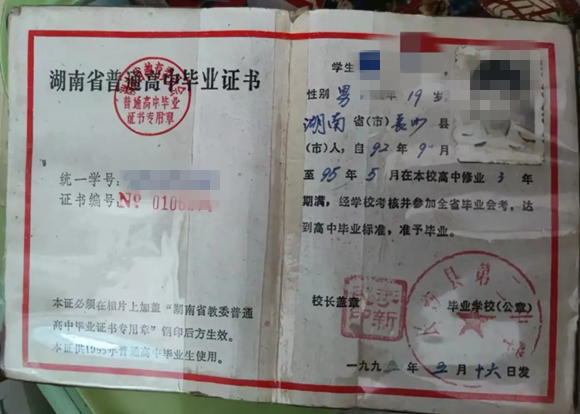 湖南省普通高中毕业证书
普通高中毕业
证书专用章
统一学号:
证书编号: No 0106
本证必须在相片上加盖“湖南省教委普通
高中毕业证书专用章”钢印后方生效。
本证供1995年普通高中毕业生使用。
学生
性别 男 19 岁
湖南 省(市) 长沙 县
(市)人,自 92 年 9 月
至 95 年 5 月在本校高中修业 3 年
期满,经学校考核并参加全省毕业会考,达
到高中毕业标准,准予毕业。
校长盖章
毕业学校(公章)
长沙县第
一九九五年 五 月 十六 日发